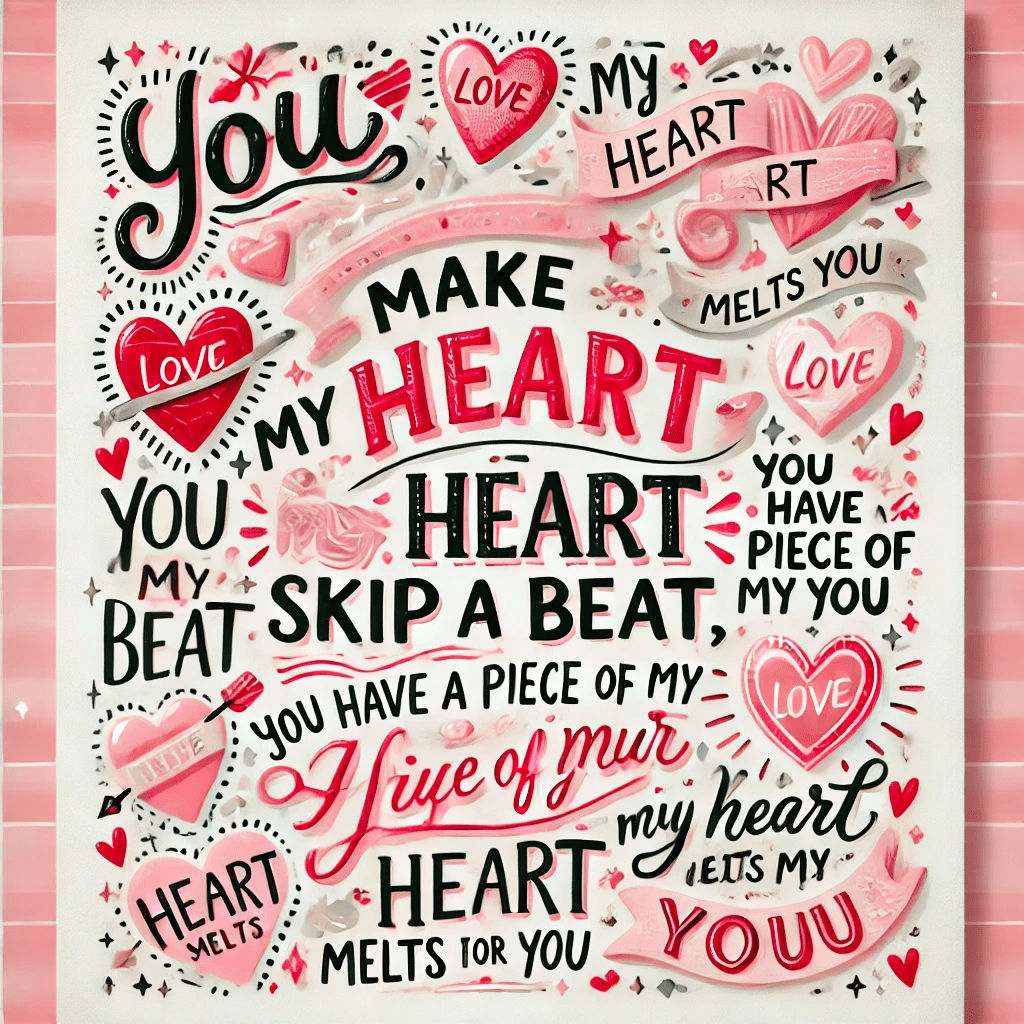 You
LOVE
MY
HEART
RT
MELTS YOU
MAKE
MY HEART
LOVE
LOVE
HEART
SKIP A BEAT,
YOU
MY
BEAT
YOU
HAVE
PIECE OF
MY YOU
YOU HAVE A PIECE OF MY
of mur
LOVE
HEART
MELTS FOR YOU
my heart
MY
YOUU
HEART
MELTS